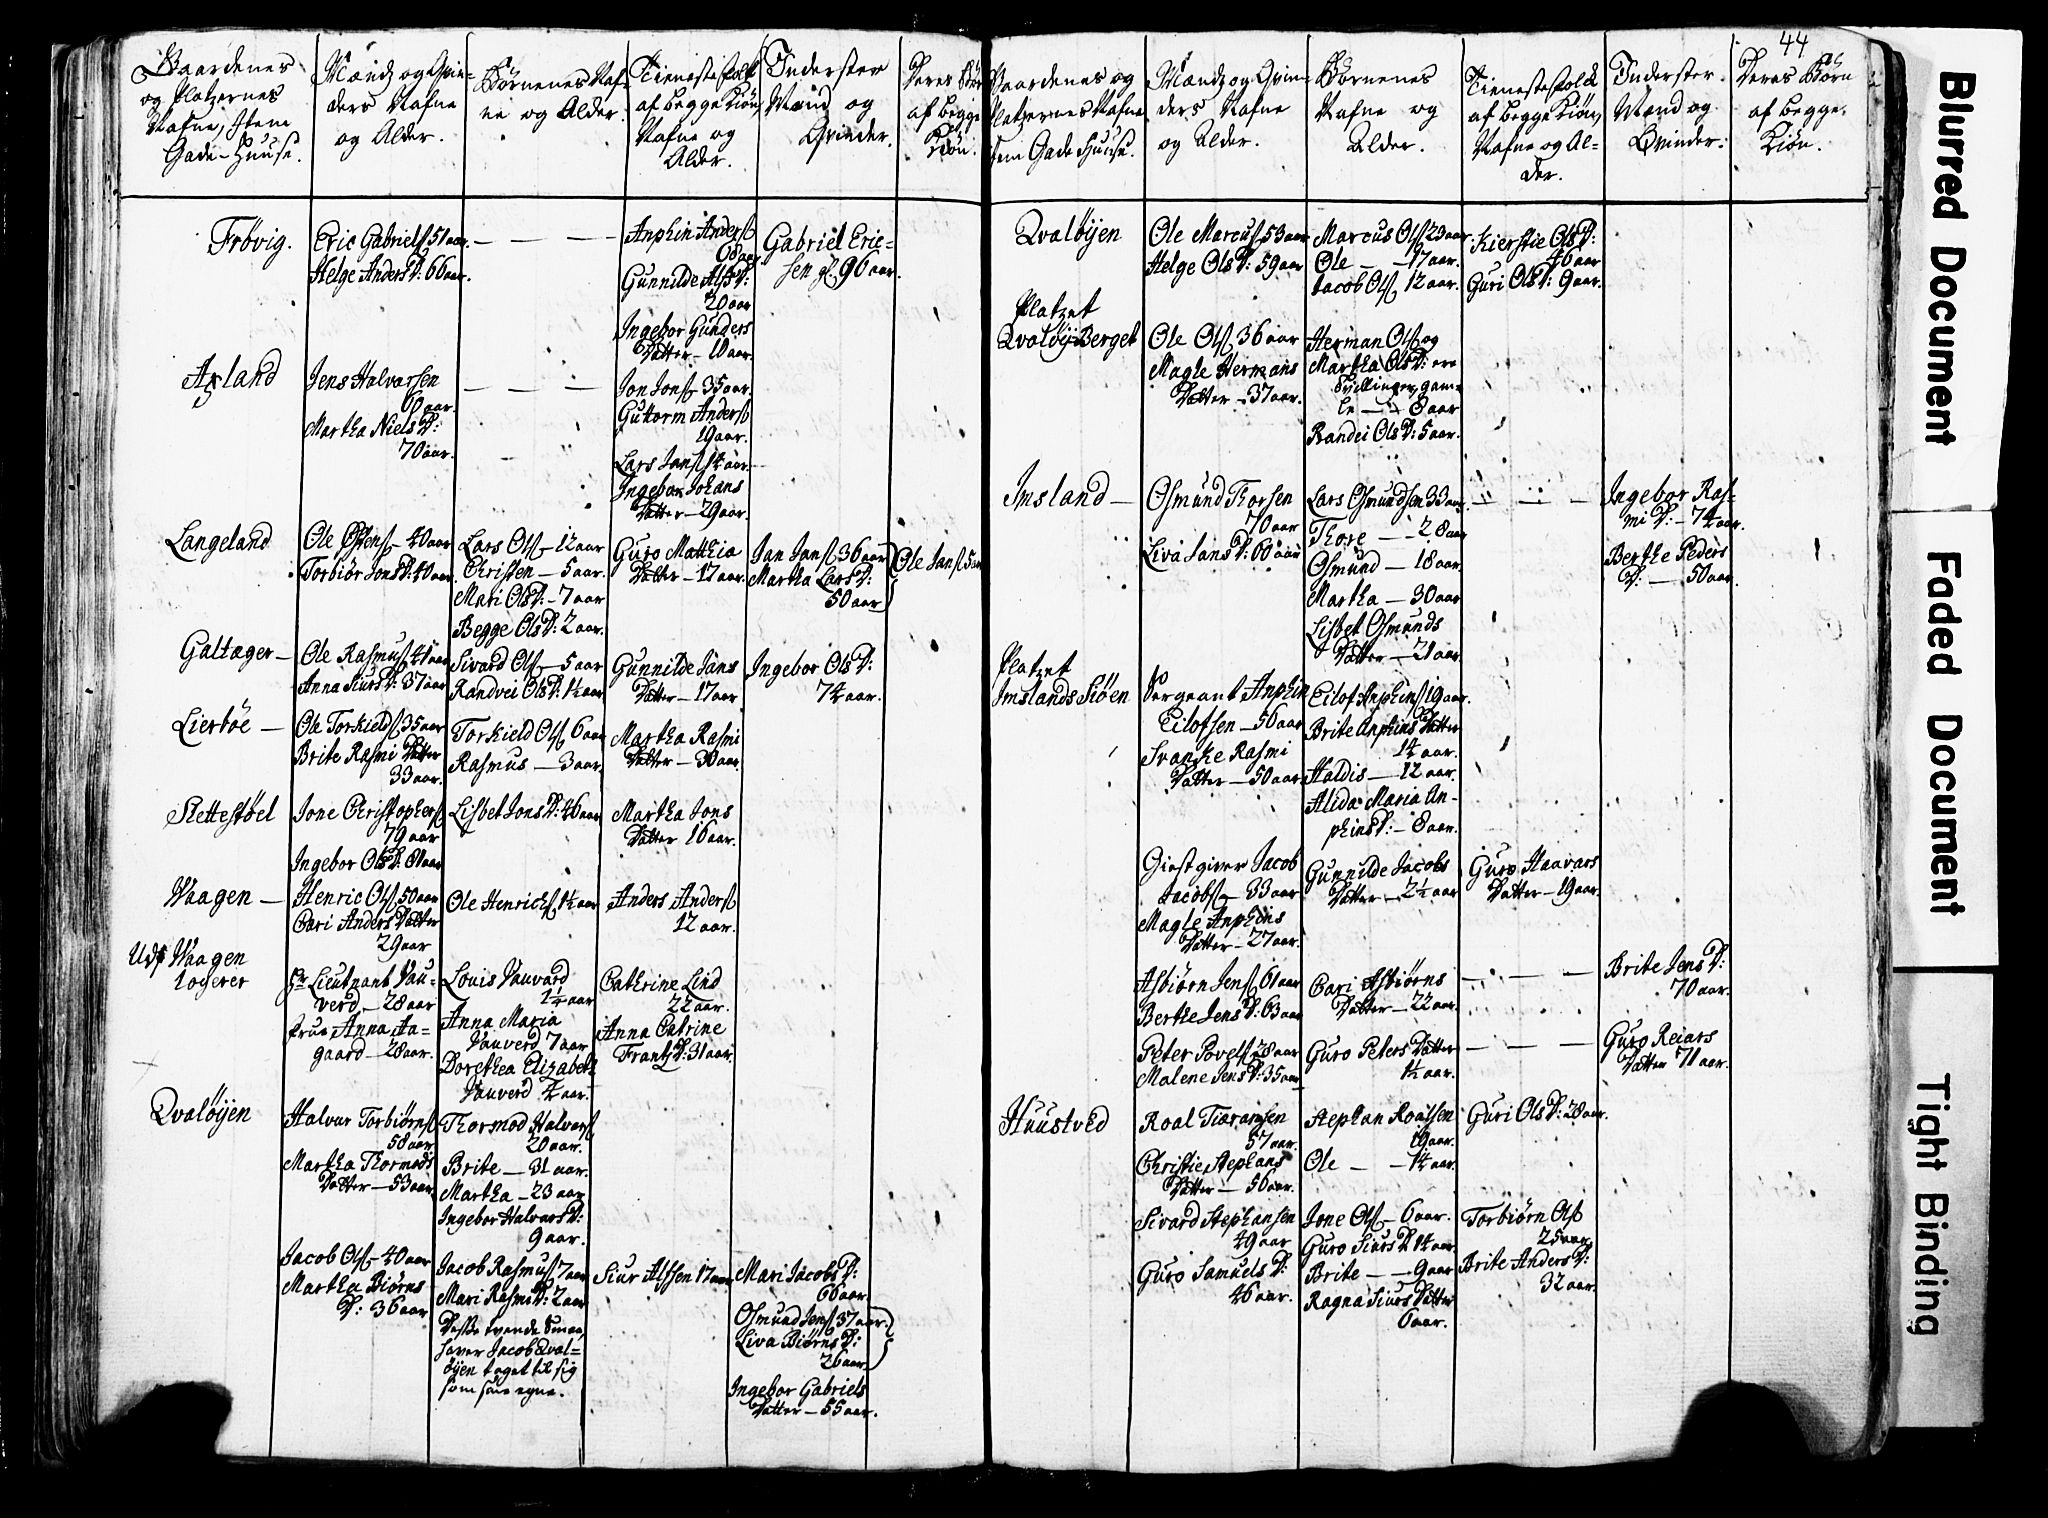 44
Gaardenes
og Platzernes
Nafne, Item
Gade-Huuse.
Mænds og Qvin-
ders Nafne
og Alder.
Børnenes Naf-
ne og Alder.
Tienestefolk
af begge Kiøn,
Nafne og
Alder.
Inderster
Mænd og
Qvinder.
Deres Børn
af begge
Kiøn.
Frøvig.
Eric Gabriels 51 aar
Helge Anders D: 66 aar.
Anphin Anders
68 aar
Gunnilde Alfs D:
20 aar
Ingebor Gunders
Datter — 10 aar.
Gabriel Eric-
sen gl. 96 aar.
Axland
Jens Halvorsen
60 aar.
Martha Niels D:
70 aar.
Jon Jons 35 aar
Guttorm Anders
19 aar.
Lars Jans 14 aar.
Ingebor Johans
Datter — 29 aar.
Langeland
Ole Østens — 40 aar
Torbiør Jons D: 40 aar
Lars Ols — 12 aar
Christen — 5 aar.
Mari Ols D: — 7 aar
Begge Ols D: 2 aar.
Guro Matthia
Datter — 17 aar.
Jan Jans 36 aar
Martha Lars D:
50 aar
Ole Jans 5 aar
Galtager —
Ole Rasmus 41 aar
Anna Siurs D: 37 aar
Sivard Ols — 5 aar
Randvei Ols D: 1½ aar
Gunnilde Jans
Datter — 17 aar
Ingebor Ols D:
74 aar.
Lierbøe —
Ole Torkields 35 aar
Brite Rasmi Datter
33 aar.
Torkield Ols 6 aar
Rasmus — 3 aar.
Martha Rasmi
Datter — 30 aar.
Slettestøel
Jone Christophers
79 aar
Ingebor Ols D: 81 aar
Lisbet Jons D: 46 aar
Martha Jons
Datter 16 aar.
Waagen —
Henric Ols 50 aar
Cari Anders Datter
29 aar
Ole Henrichs 1½ aar
Anders Anders
12 aar.
Udj Waagen
logerer
Hr Lieutnant Vau-
verd — 28 aar
frue Anna Aa-
gaard — 28 aar.
Louis Vauverd
1¼ aar
Anna Maria
Vauverd 7 aar
Dorethea Elizabeth
Vauverd 4 aar.
Cathrine Lind
22 aar.
Anna Catrine
Frantz D: 31 aar.
Qvaløyen
Halvur Torbiørns
58 aar
Martha Thormods
Datter — 53 aar
Thormod Halvors
20 aar.
Brite — 31 aar.
Martha — 23 aar
Ingebor Halvors D:
9 aar.
Jacob Ols — 40 aar
Martha Biørns
D: 36 aar
Jacob Rasmus 7 aar
Mari Rasmi D: 2 aar
Disse tvende Smaa,
haver Jacob Qval-
øyen taget til sig
som sine egne.
Siur Alfsen 17 aar
Mari Jacobs D:
66 aar.
Osmund Jens 37 aar.
Liva Biørns D:
26 aar.
Ingebor Gabriels
Datter — 55 aar.
Gaardenes og
Platzernes Nafne
Item Gade Huuse.
Mænds og Qvin-
ders Nafne
og Alder.
Børnenes
Nafne og
Alder.
Tienestefolck
af begge Kiøn,
Nafne og Al-
der.
Inderster
Mænd og
Qvinder.
Deres Børn
af begge
Kiøn.
Qvaløyen
Ole Marcus 53 aar
Helge Ols D: 59 aar
Marcus Ols 23 aar
Ole — — 17 aar.
Jacob Ols 12 aar.
Kierstie Ols D:
46 aar
Guri Ols D: 9 aar.
Platzet
Qvaløy-Berget
Ole Ols 36 aar
Magle Hermans
Datter — 37 aar.
Herman Ols og
Martha Ols D: ere
Tvillinger, gam-
le — — 8 aar
Randei Ols D: 5 aar.
Imsland —
Osmund Thorsen
70 aar
Liva Jans D: 60 aar
Lars Osmundsen 33 aar
Thore — — 28 aar
Osmund — 18 aar.
Martha — 30 aar
Lisbet Osmunds
Datter — 21 aar.
Ingebor Ras-
mi D: — 74 aar.
Berthe Peders
D: — 50 aar.
Platzet
Imslands Siøen
Sergeant Anphin
Eilofsen — 56 aar
Svanke Rasmi
Datter — 50 aar
Eilof Anphins 19 aar.
Brite Anphins Datter
14 aar.
Haldis — 12 aar.
Alida Maria An-
phins D: — 8 aar.
Giestgiver Jacob
Jacobs — 33 aar
Magle Anphins
Datter — 27 aar.
Gunnilde Jacobs
Datter — 2½ aar
Guro Haavars
Datter — 19 aar.
Asbiørn Jens 61 aar
Berthe Jens D: 63 aar
Cari Asbiørns
Datter — 22 aar.
Brite Jens D:
70 aar.
Peter Povels 28 aar
Malene Jens D: 35 aar
Guro Peters Datter
1½ aar.
Guro Reiars
Datter 71 aar.
Huustved
Roal Tiøransen
57 aar.
Christie Stephans
Datter — 56 aar.
Stephan Roalsen
19 aar.
Ole — — 14 aar.
Guri Ols D: 28 aar.
Sivard Stephansen
49 aar
Guro Samuels D:
46 aar.
Jone Ols — 6 aar.
Guro Siurs D 14 aar.
Brite — — 9 aar
Ragna Siurs Datter
6 aar.
Torbiørn Ols
25 aar
Brite Anders D:
32 aar.
Blurred Document
Faded Document
Tight Binding